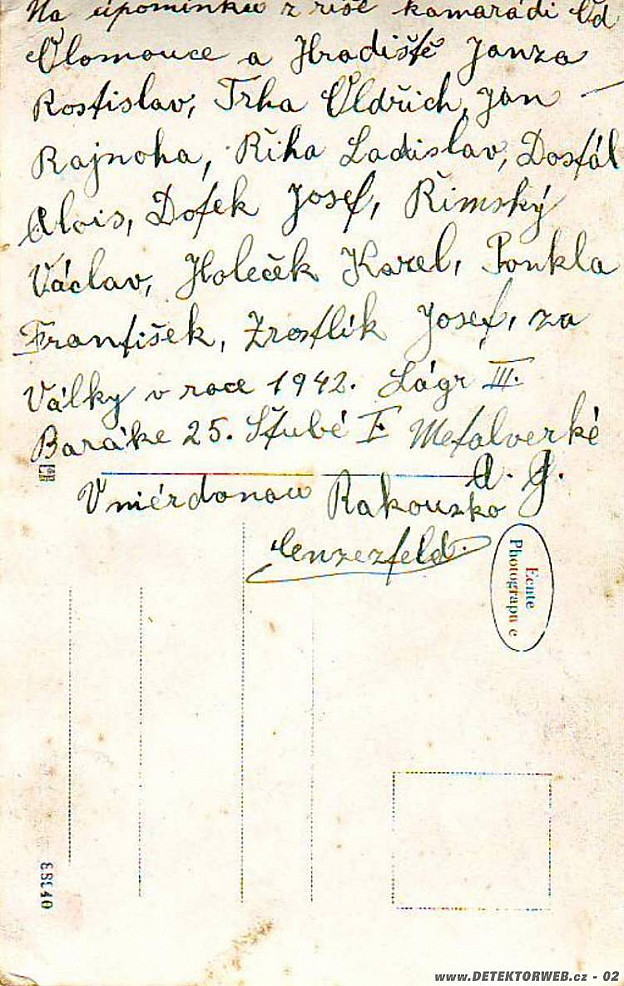 Na upomínku z říše kamarádi Od
Olomouce a Hradiště Janza
Rostislav, Trha Oldřich, Jan –
Rajnoha, Říha Ladislav, Dostál
Alois, Dofek Josef, Římský
Václav, Holeček Karel, Ponkla
František, Zrostlík Josef, za
Války v roce 1942. Lágr III.
Baráke 25. Štubé I Metalverké
A. G.
Vniérdonau Rakouzko
Cenzezféld.
Echte
Photographie
www.DETEKTORWEB.cz - 02